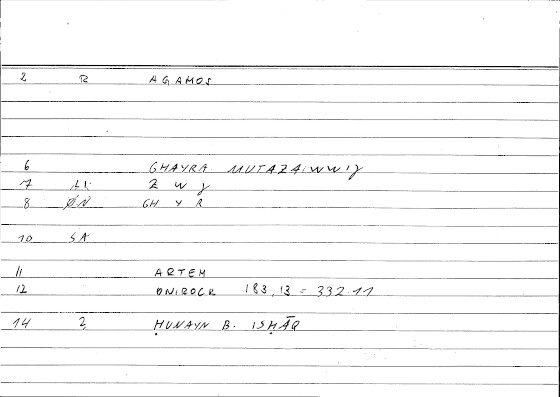 2 R AGAMOS
6 GHAYRA MUTAZAIWWIǦ
7 LI: Z W J
8 ØN GH Y R
10 SA
11 ARTEM
12 ONIROCR 183,13 = 332.11
14 2 ḤUNAYN B. ISḤĀQ